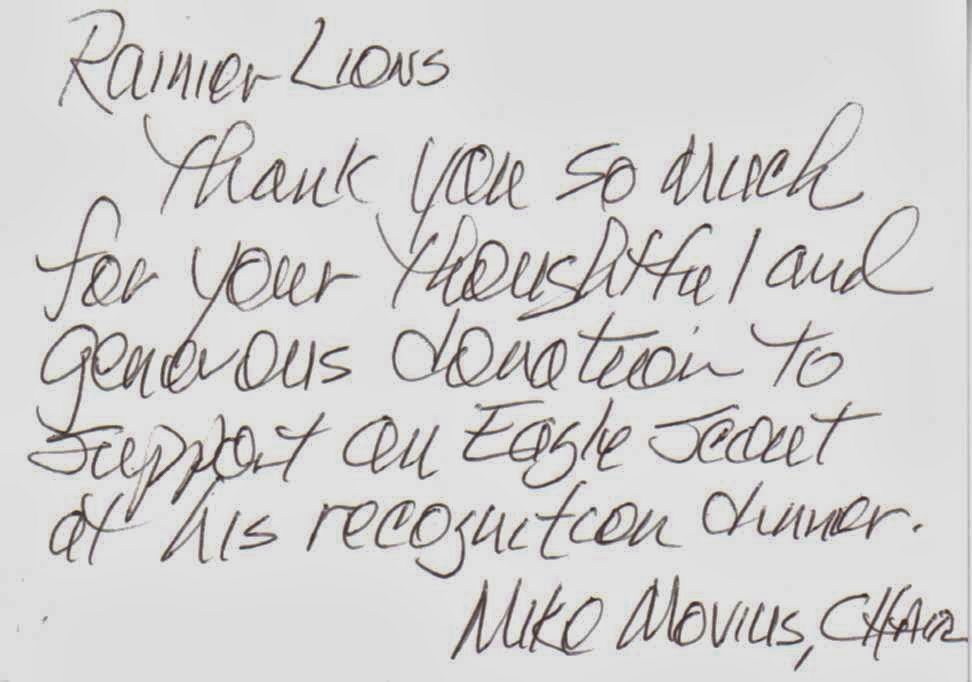 Rainier Lions
Thank you so much
for your thoughtful and
generous donation to
support an Eagle Scout
at his recognition dinner.
Mike Movius, Chair